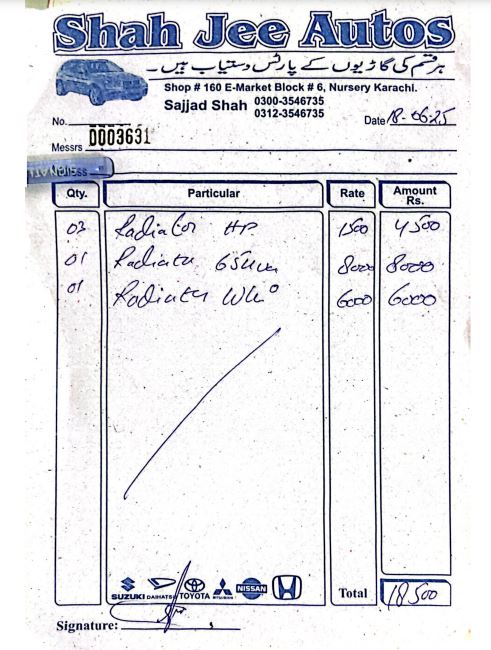 Shah Jee Autos
ہر قسم کی گاڑیوں کے پارٹس دستیاب ہیں۔
Shop # 160 E-Market Block # 6, Nursery Karachi.
Sajjad Shah 0300-3546735
0312-3546735
No. Date 18-06-25
0003631
Messrs
Qty. Particular Rate Amount Rs.
03 Radiator HP 1500 4500
01 Radiator 8000 8000
01 Radiator 6000 6000
SUZUKI DAIHATSU TOYOTA MITSUBISHI NISSAN Total 18500
Signature: